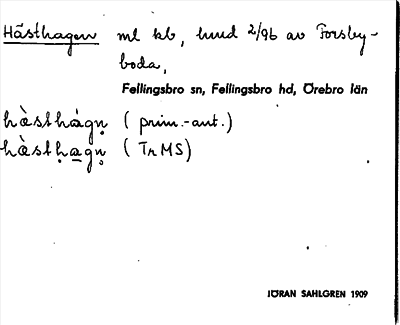 Hästhagen ml kb, hmd 2/96 av Forsby-
boda,
Fellingsbro sn, Fellingsbro hd, Örebro län
hàsthágṇ (prim.-ant.)
hàstḥạgṇ (TrMS)
JÖRAN SAHLGREN 1909